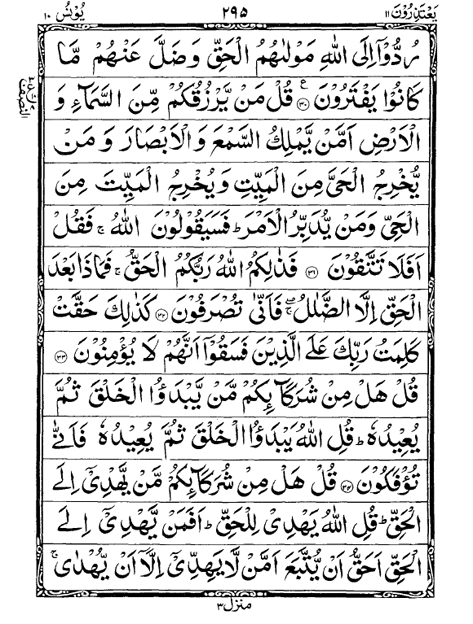 يَعْتَذِرُوْنَ ١١ ٢٩٥ يُوْنُسَ ١٠
رُدُّوْٓا اِلَى اللّٰهِ مَوْلٰىهُمُ الْحَقِّ وَضَلَّ عَنْهُمْ مَّا
كَانُوْا يَفْتَرُوْنَ ﴿٣٠﴾ۧ قُلْ مَنْ يَّرْزُقُكُمْ مِّنَ السَّمَآءِ وَ
الْاَرْضِ اَمَّنْ يَّمْلِكُ السَّمْعَ وَالْاَبْصَارَ وَمَنْ
يُّخْرِجُ الْحَىَّ مِنَ الْمَيِّتِ وَيُخْرِجُ الْمَيِّتَ مِنَ
الْحَىِّ وَمَنْ يُّدَبِّرُ الْاَمْرَؕ فَسَيَقُوْلُوْنَ اللّٰهُۚ فَقُلْ
اَفَلَا تَتَّقُوْنَ ﴿٣١﴾ فَذٰلِكُمُ اللّٰهُ رَبُّكُمُ الْحَقُّۚ فَمَاذَا بَعْدَ
الْحَقِّ اِلَّا الضَّلٰلُۖۚ فَاَنّٰى تُصْرَفُوْنَ ﴿٣٢﴾ كَذٰلِكَ حَقَّتْ
كَلِمَتُ رَبِّكَ عَلَى الَّذِيْنَ فَسَقُوْٓا اَنَّهُمْ لَا يُؤْمِنُوْنَ ﴿٣٣﴾
قُلْ هَلْ مِنْ شُرَكَآئِكُمْ مَّنْ يَّبْدَؤُا الْخَلْقَ ثُمَّ
يُعِيْدُهٗؕ قُلِ اللّٰهُ يَبْدَؤُا الْخَلْقَ ثُمَّ يُعِيْدُهٗ فَاَنّٰى
تُؤْفَكُوْنَ ﴿٣٤﴾ قُلْ هَلْ مِنْ شُرَكَآئِكُمْ مَّنْ يَّهْدِىْٓ اِلَى
الْحَقِّؕ قُلِ اللّٰهُ يَهْدِىْ لِلْحَقِّؕ اَفَمَنْ يَّهْدِىْٓ اِلَى
الْحَقِّ اَحَقُّ اَنْ يُّتَّبَعَ اَمَّنْ لَّا يَهِدِّىْٓ اِلَّاۤ اَنْ يُّهْدٰىۚ
منزل ٣